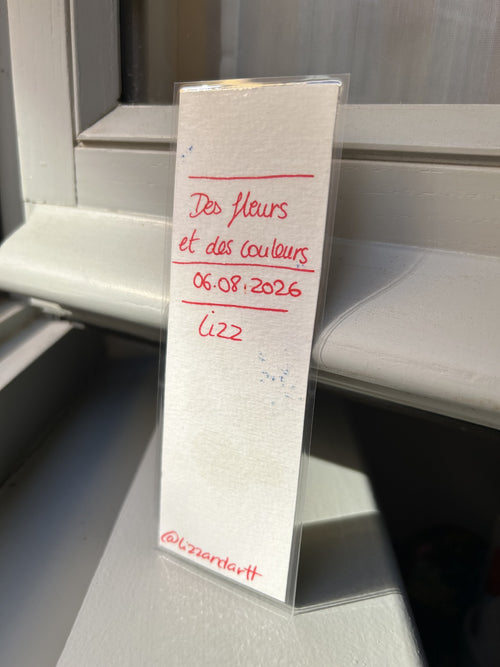 Des fleurs
et des couleurs
06.08.2026
lizz
@lizzandartt